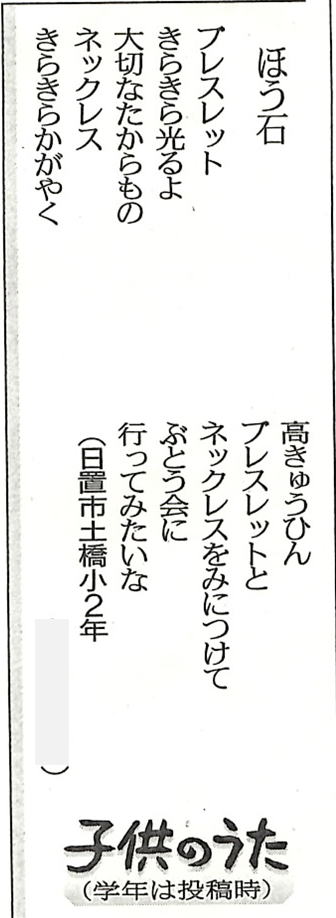 ほう石
ブレスレット
きらきら光るよ
大切なたからもの
ネックレス
きらきらかがやく
高きゅうひん
ブレスレットと
ネックレスをみにつけて
ぶとう会に
行ってみたいな
（日置市土橋小２年
）
子供のうた
（学年は投稿時）